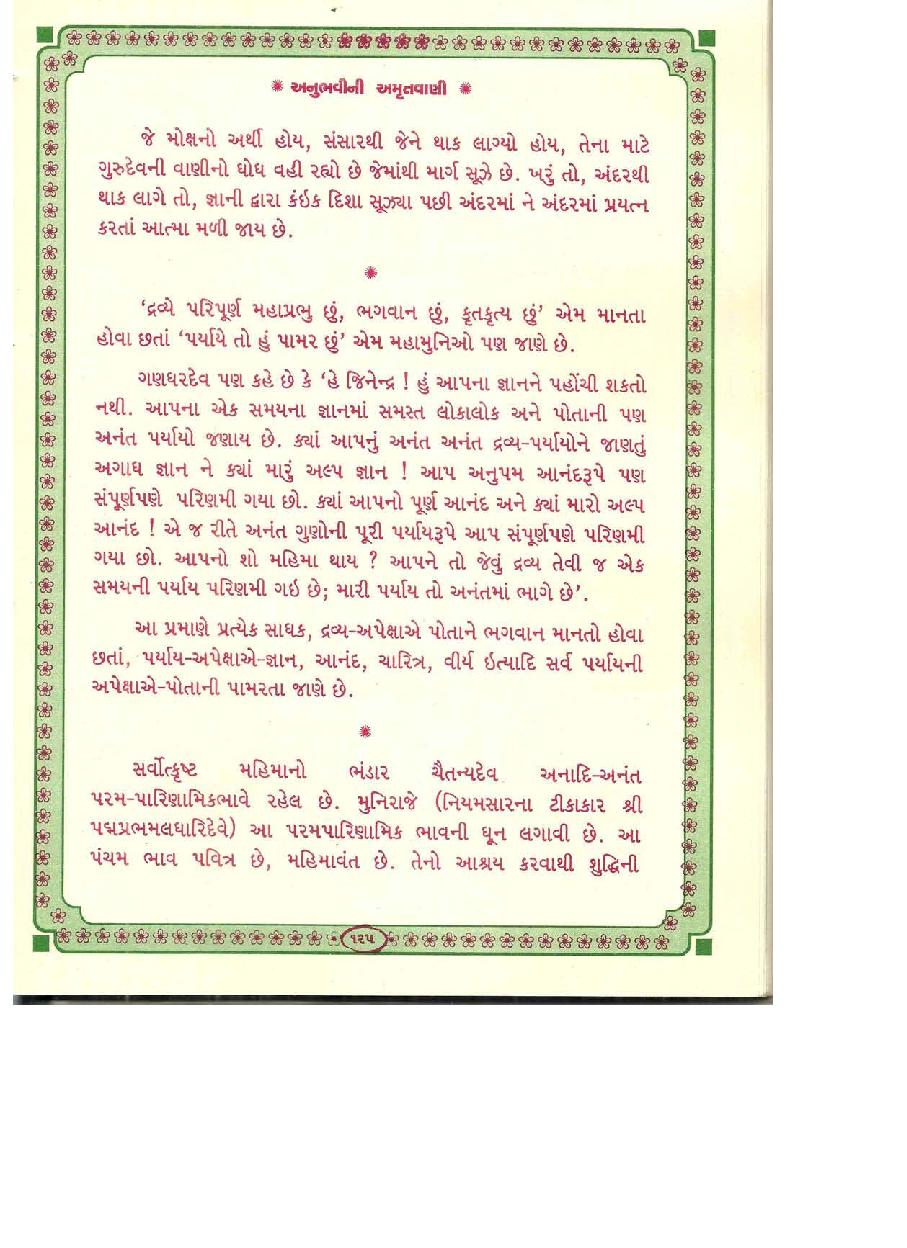 અનુભવીની અમૃતવાણી
જે મોક્ષનો અર્થી હોય, સંસારથી જેને થાક લાગ્યો હોય, તેના માટે
ગુરુદેવની વાણીનો ધોધ વહી રહ્યો છે જેમાંથી માર્ગ સૂઝે છે. ખરું તો, અંદરથી
થાક લાગે તો, જ્ઞાની દ્વારા કંઇક દિશા સૂઝ્યા પછી અંદરમાં ને અંદરમાં પ્રયત્ન
કરતાં આત્મા મળી જાય છે.
‘દ્રવ્યે પરિપૂર્ણ મહાપ્રભુ છું, ભગવાન છું, કૃતકૃત્ય છું’ એમ માનતા
હોવા છતાં ‘પર્યાયે તો હું પામર છું’ એમ મહામુનિઓ પણ જાણે છે.
ગણધરદેવ પણ કહે છે કે ‘હે જિનેન્દ્ર ! હું આપના જ્ઞાનને પહોંચી શકતો
નથી. આપના એક સમયના જ્ઞાનમાં સમસ્ત લોકાલોક અને પોતાની પણ
અનંત પર્યાયો જણાય છે. ક્યાં આપનું અનંત અનંત દ્રવ્ય-પર્યાયોને જાણતું
અગાધ જ્ઞાન ને ક્યાં મારું અલ્પ જ્ઞાન ! આપ અનુપમ આનંદરૂપે પણ
સંપૂર્ણપણે પરિણમી ગયા છો. ક્યાં આપનો પૂર્ણ આનંદ અને ક્યાં મારો અલ્પ
આનંદ ! એ જ રીતે અનંત ગુણોની પૂરી પર્યાયરૂપે આપ સંપૂર્ણપણે પરિણમી
ગયા છો. આપનો શો મહિમા થાય ? આપને તો જેવું દ્રવ્ય તેવી જ એક
સમયની પર્યાય પરિણમી ગઇ છે; મારી પર્યાય તો અનંતમાં ભાગે છે’.
આ પ્રમાણે પ્રત્યેક સાધક, દ્રવ્ય-અપેક્ષાએ પોતાને ભગવાન માનતો હોવા
છતાં, પર્યાય-અપેક્ષાએ-જ્ઞાન, આનંદ, ચારિત્ર, વીર્ય ઇત્યાદિ સર્વ પર્યાયની
અપેક્ષાએ-પોતાની પામરતા જાણે છે.
સર્વોત્કૃષ્ટ મહિમાનો ભંડાર ચૈતન્યદેવ અનાદિ-અનંત
પરમ-પારિણામિકભાવે રહેલ છે. મુનિરાજે (નિયમસારના ટીકાકાર શ્રી
પદ્મપ્રભમલધારિદેવે) આ પરમપારિણામિક ભાવની ધૂન લગાવી છે. આ
પંચમ ભાવ પવિત્ર છે, મહિમાવંત છે. તેનો આશ્રય કરવાથી શુદ્ધિની
૧૨૫